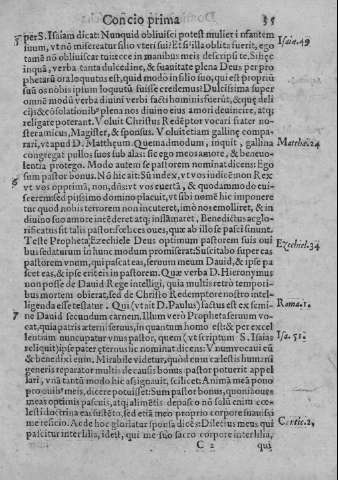 Concio prima
35
per S. Isaiam dicat: Nunquid oblivisci potest mulier infantem
suum, vt nõ misereatur filio vteri sui? Et si illa oblita fuerit, ego
Isaia. 49
tamẽ nõ obliuiscar tui: ecce in manibus meis descripsi te. Sii sic
inquã, verba tanta dulcedine, & suauitate plena Deus per pro
phetarũ ora loquutus est, quid modo in filio suo, qui est propriũ
suũ os nobis ipsum loquutũ fuisse credemus? Dulcissima super
omnẽ modũ verba diuini verbi facti hominis fuerũt, & quę deli
cijs & cõsolationibꝰ plena nos diuino eius amori deuincire, atqꝫ
religate poterant. Voluit Christus Redẽptor vocari frater no-
ster amicus, Magister, & sponsus. Voluit etiam gallinę compa-
rari, vt apud D. Matthęum. Quemadmodum, inquit, gallina
Matthæ. 24
congregat pullos suos sub alas: sic ego meos amore, & beneuo-
lentia protego. Modo autem se pastorem nominat dicens: Ego
sum pastor bonus. Nõ hic ait: Sũ index, vt vos iudicẽ non Rex
6
vt vos opprimã, non, dñs vt vos euertã, & quodammodo cui-
serem: sed pijssimo domino placuit, vt sibi nomẽ hic imponere
tur quod nobis terrorem non incuteret, imò nos emolliret, & in
diuino suo amore incẽderet atqꝫ inflãmaret, Benedictus ac glo-
rificatus sit talis pastor: fœlices oues, quæ ab illo se pasci sinunt.
Teste Propheta Ezechiele Deus optimum pastorem suis oui
bus sedaturum in hunc modum promiserat: Suscitabo super eas
Ezechiel. 34
pastorem vnum, qui pascat eas, seruum meum Dauid, & ipse pa
scet eas, & ipse erit eis in pastorem. Quæ verba D. Hieronymus
non posse de Dauid Rege intelligi, quia multis retrò tempori-
bus mortem obierat, sed de Christo Redemptore nostro intel-
ligenda esse testatur. Qui (vt ait D. Paulus) factus est ex semi-
Roma. 1.
ne Dauid secundum carnem. Illum verò Propheta seruum vo-
7
cat, quia patris æterni seruus, in quantum homo est: & per excel
lentiam nuncupatur vnus pastor, quem (vt scriptum S. Isaias
Isa. 51.
reliquit) ipse pater eternus hic nominat dicens: Vnum vocaui eũ
& benedixi eum. Mirabile videtur, quod cum cælestis humani
generis reparator multis de causis bonus pastor potuerit appel
lari, vnã tantũ modo hic assignauit, scilicet: Animã meã pono
pro ouibꝰ meis, dicere potuisset: Sum pastor bonus, quoniã oues
meas optimis pascuis, atqꝫ alimẽtis depasco nõ solũ enim cœ-
lesti doctrina eas sustẽto, sed etiã meo proprio corpore suauissi
me reficio. Ac de hoc gloriatur sponsa dicẽs: Dilectus meus qui
Cantic. 2.
pascitur inter lilia, idest, qui me suo sacro corpore inter lilia,
C 2
qui